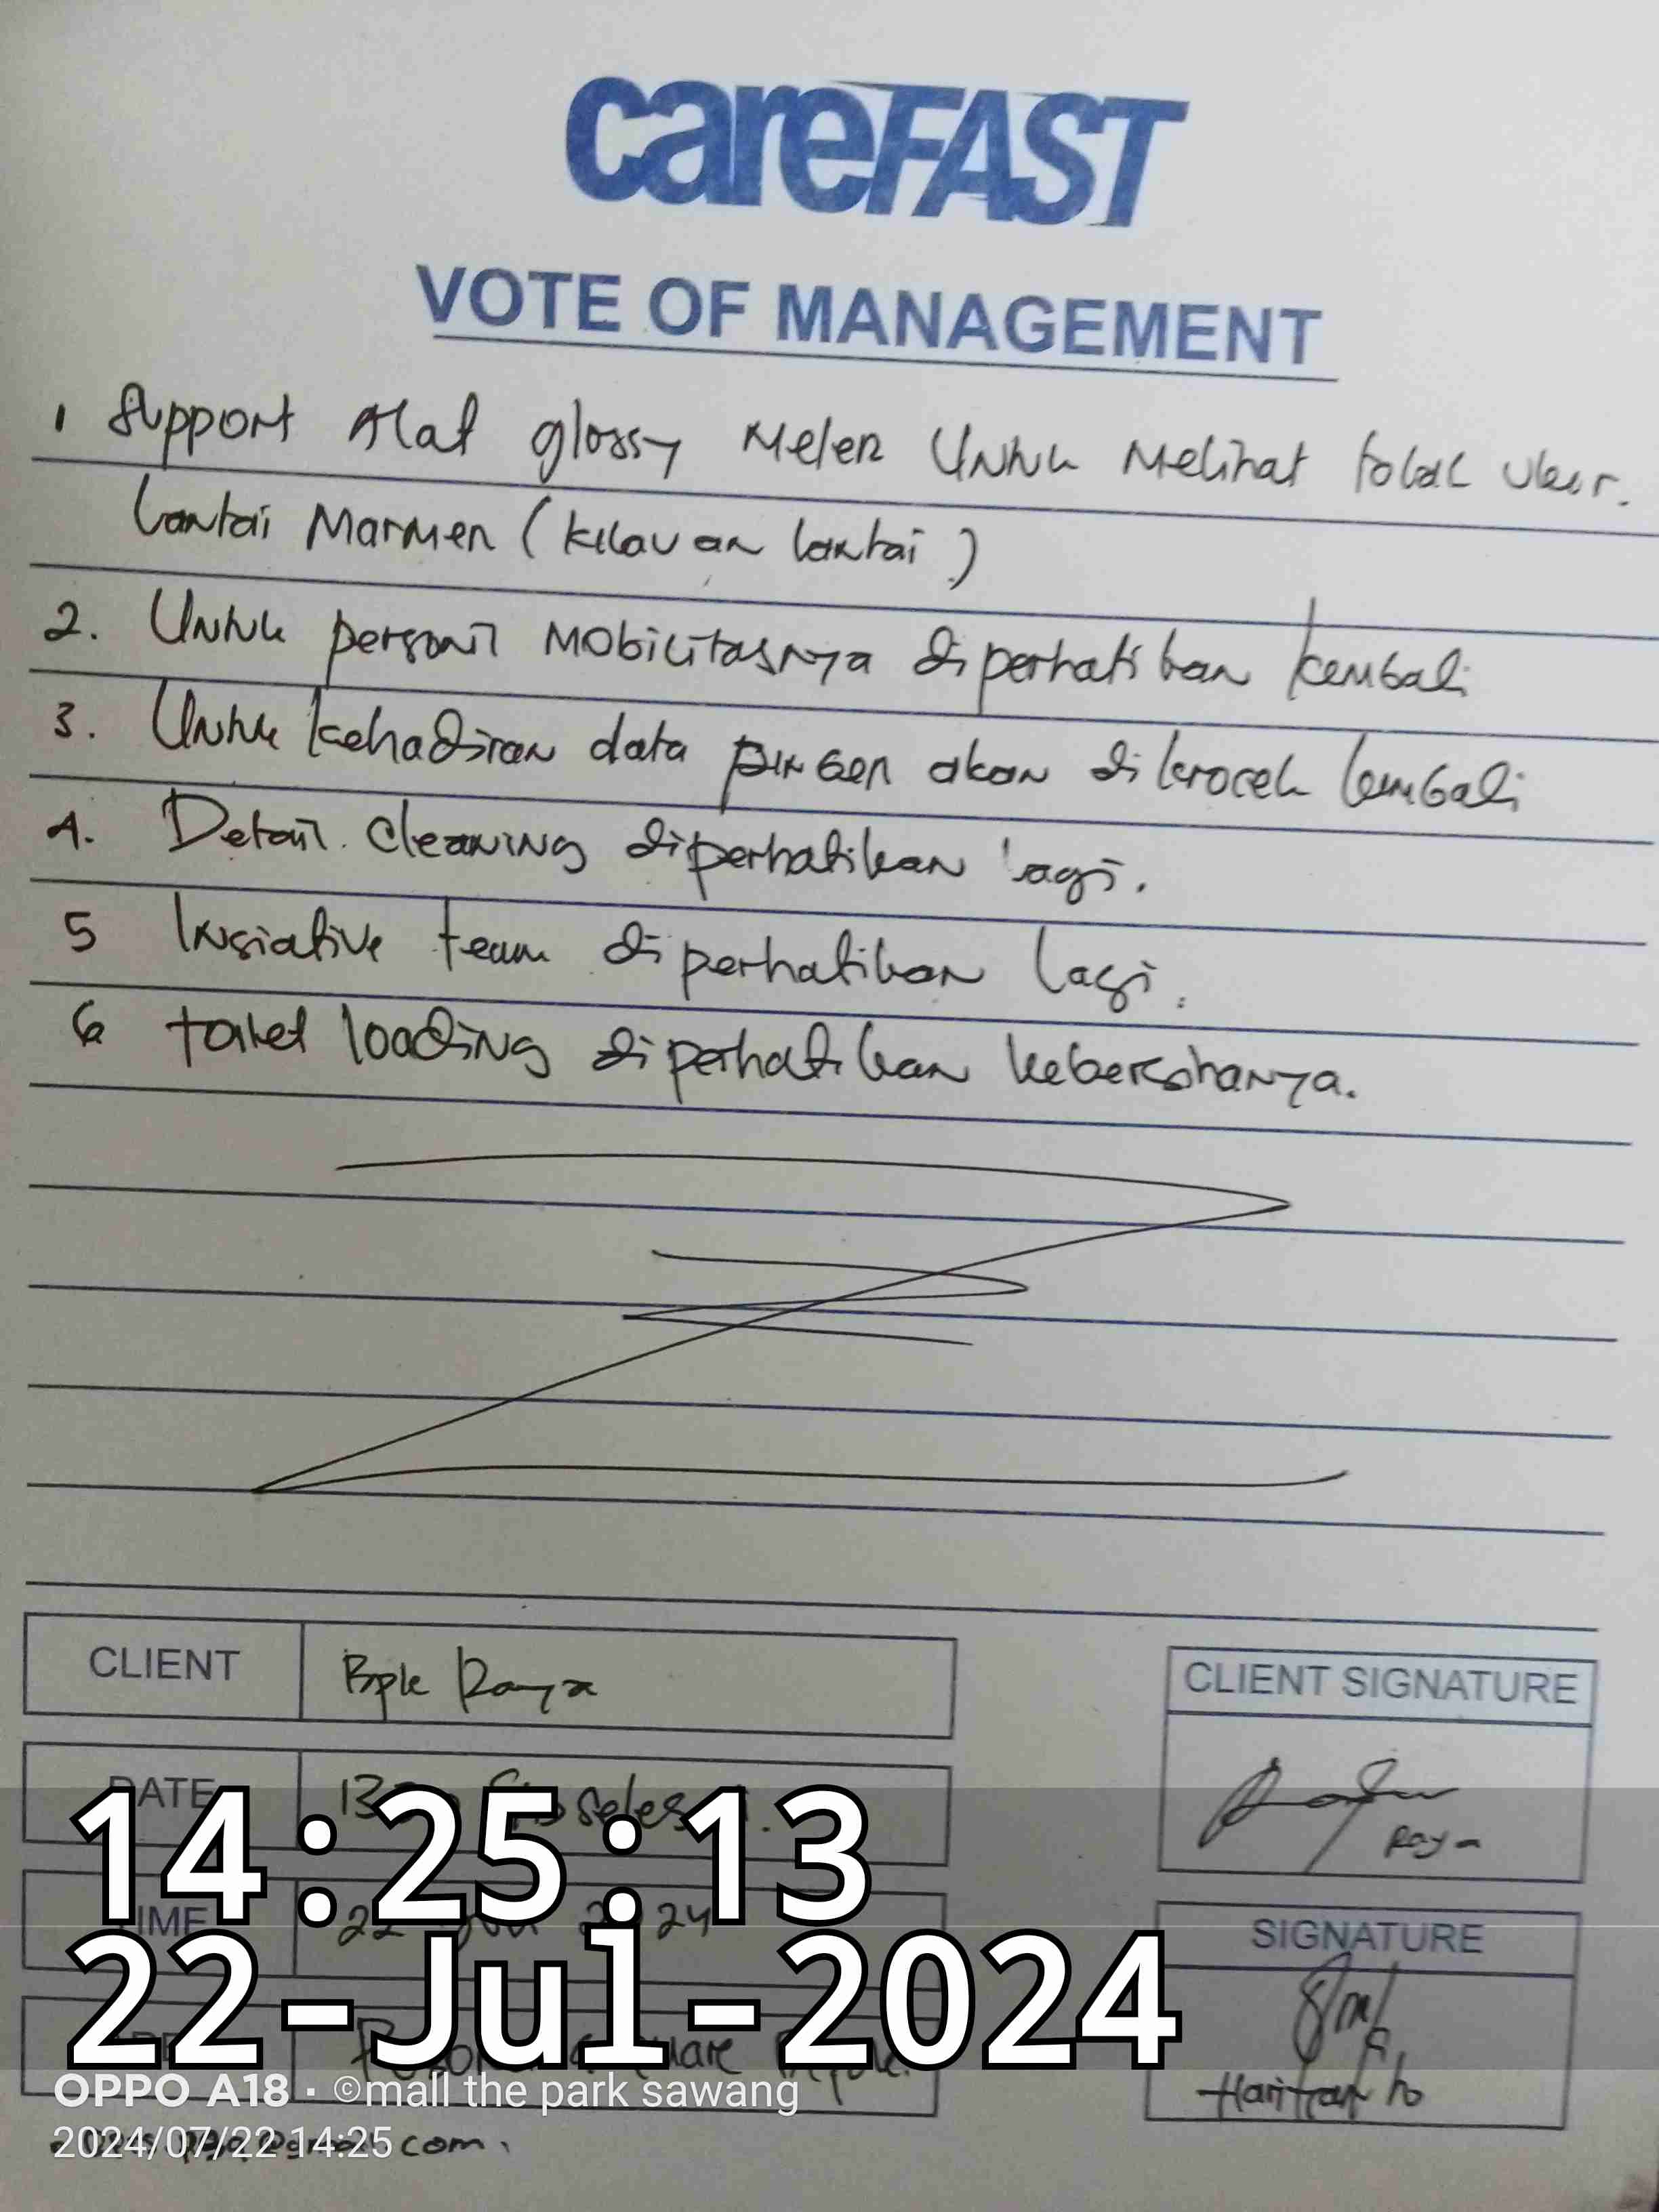 careFAST
VOTE OF MANAGEMENT
1 Support Alat glossy Meter Untuk Melihat tolak Ukur.
Lantai Marmer (kilauan lantai)
2. Untuk personil Mobilitasnya diperhatikan kembali
3. Untuk kehadiran data finger akan dikrocek kembali
4. Detail cleaning diperhatikan lagi.
5 Insiative team diperhatikan lagi.
6 toilet loading diperhatikan kebersihanya.
CLIENT
Bpk Raya
CLIENT SIGNATURE
Raya
DATE
TIME
SIGNATURE
Hariyanto
14:25:13
22-Jul-2024
OPPO A18 · ©mall the park sawang
2024/07/22 14:25